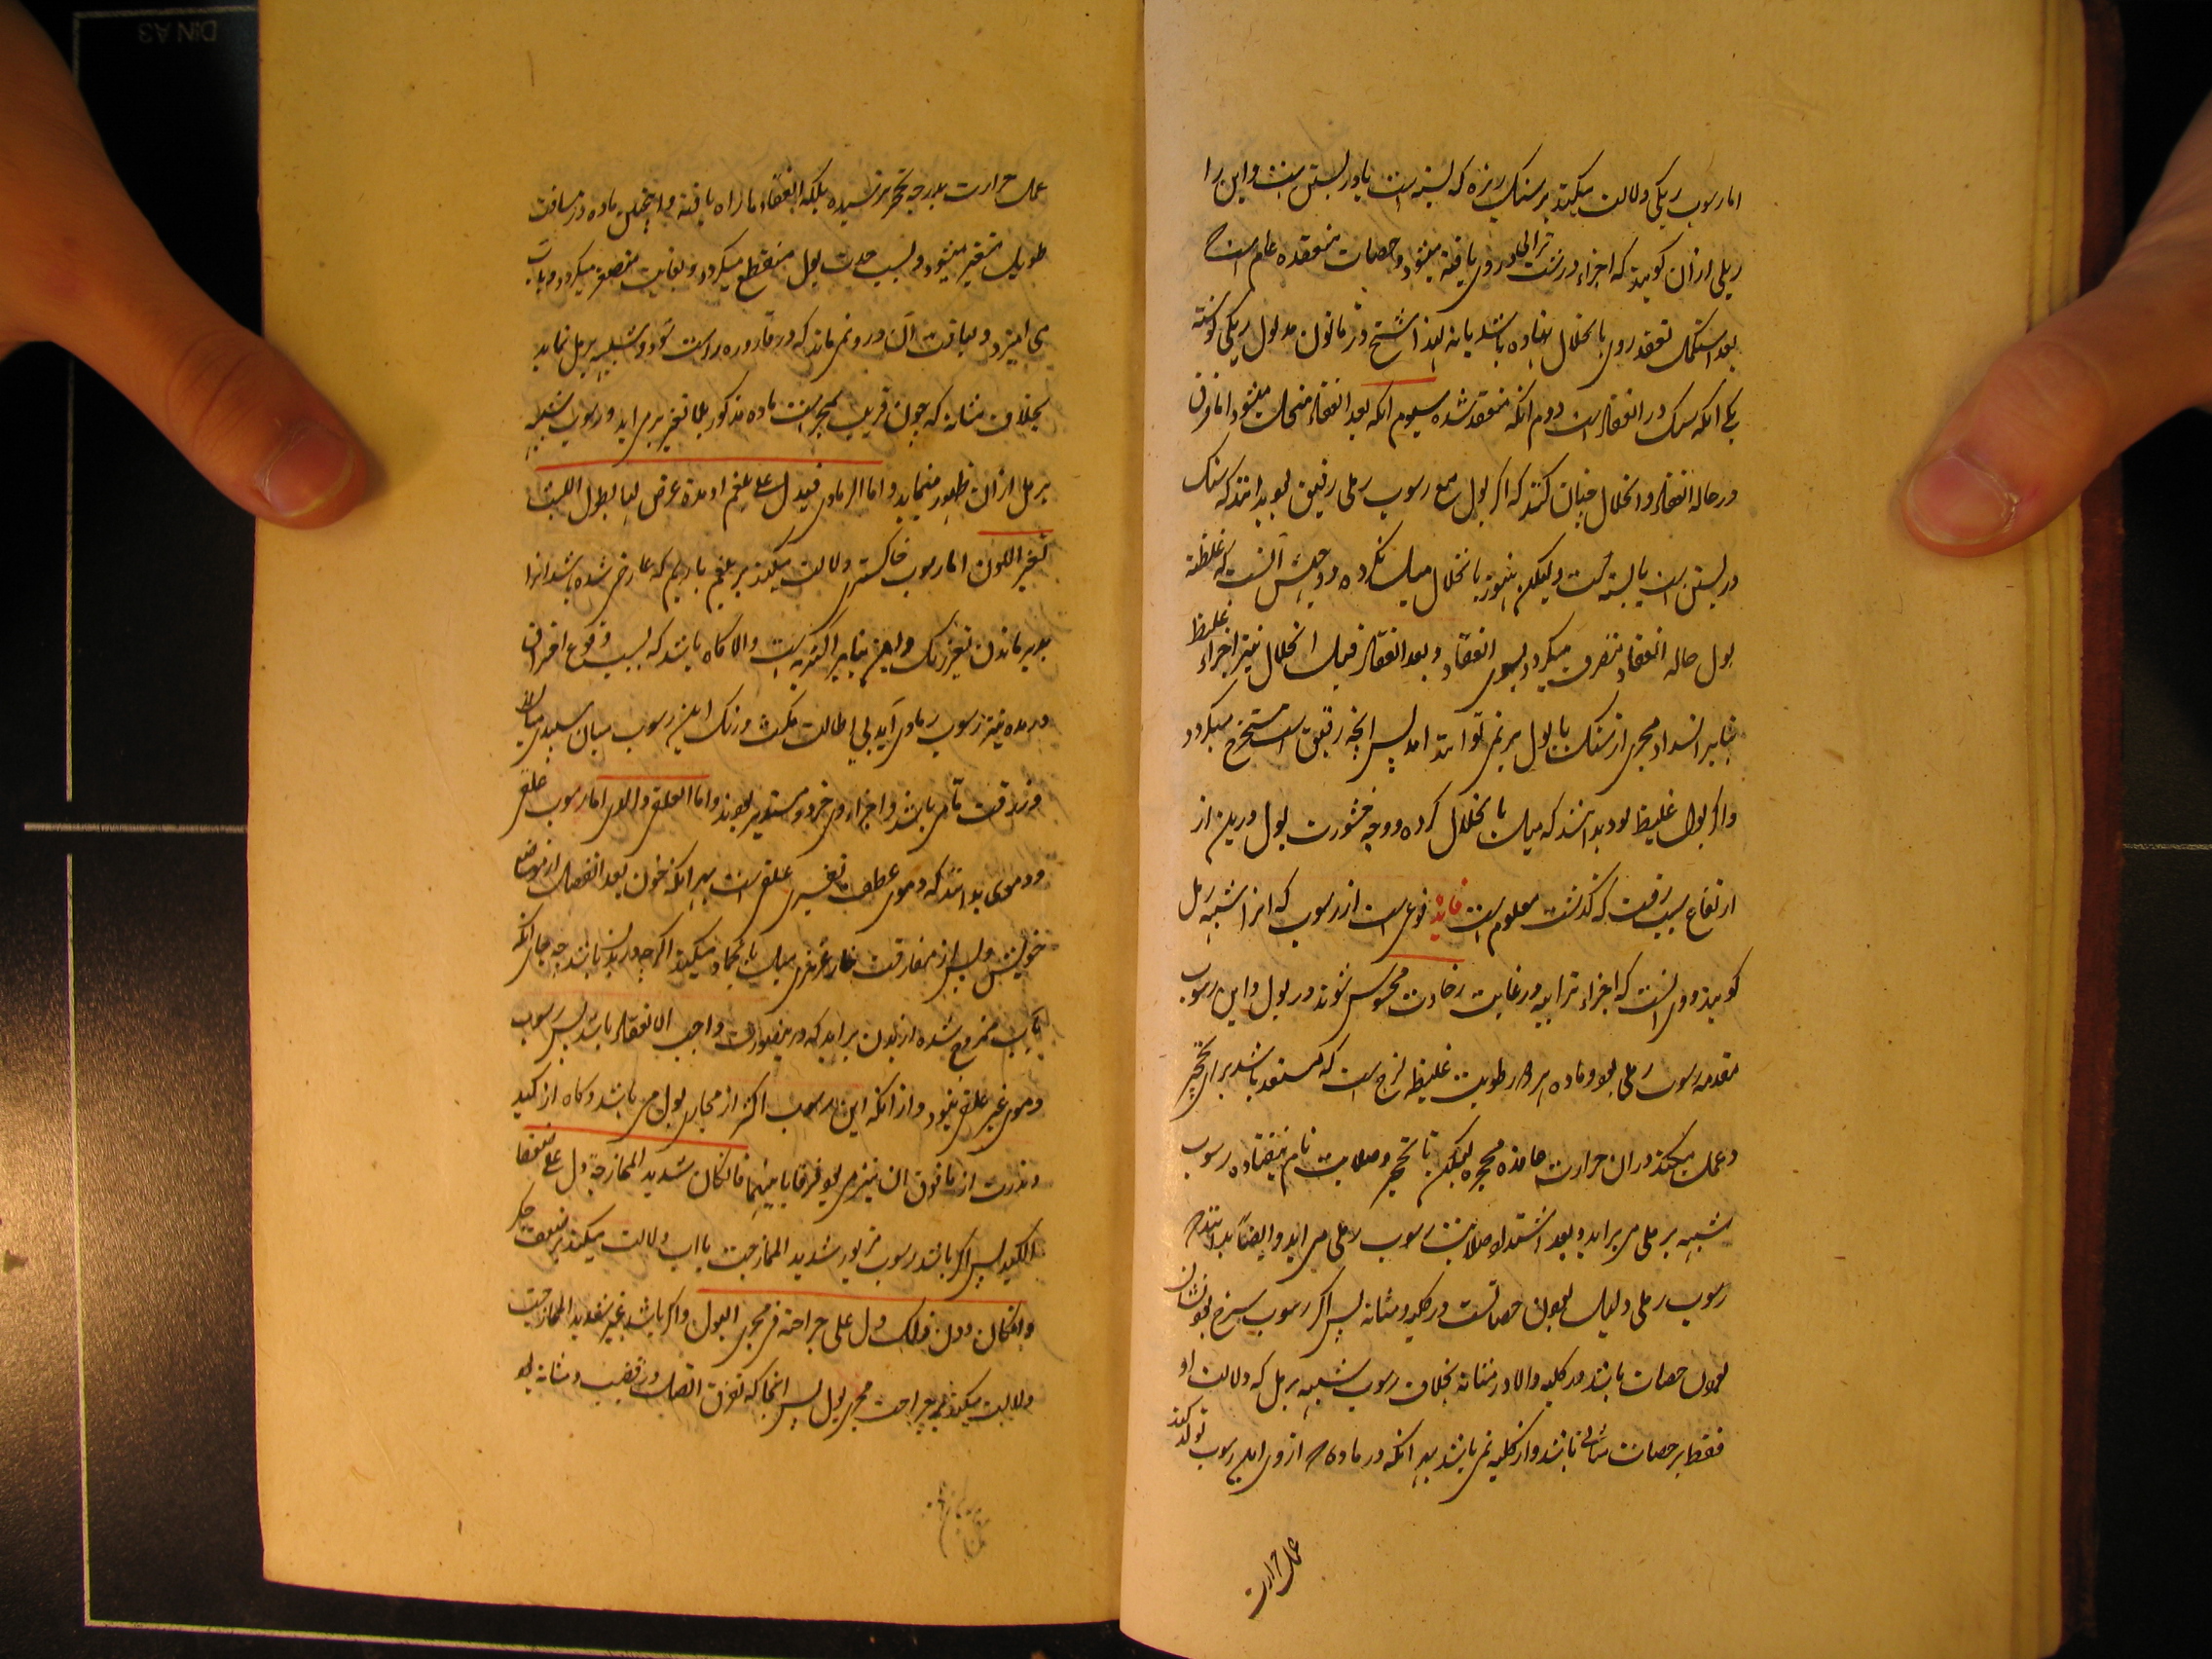 اما رسوب ریکی دلالت میکند بر سنک ریزه که بسته است یا در بستن است و این را
رملی ازان کویند که اجزاء درشت ترابی در وی یافته میشود و حصات منعقده عام است
بعد استکمال تعقد روی بانحلال نهاده باشد یا نه لهذا شیخ در قانون مدلول ریکی کونه
یکی انکه سنک در انعقاد است دوم انکه منعقد شده سیوم انکه بعد انعقاد منحل میشود اما فرق
در حاله انعقاد و انحلال چنان کنند که اکر بول مع رسوب رملی رقیق بود بدانند که سنک
در بستن است یا بسته است ولیکن هنوز بانحلال میل نکرده و وجهش آنست که غلظته
بول حاله انعقاد منصرف میکردد بسوی انعقاد و بعد انعقاد قبل انحلال نیز اجزاء غلیظ
بنابر انسداد مجری از سنک با بول بر نمی توانند امد پس انچه رقیق است مستخرج میکردد
و اکر بول غلیظ بود بدانند که میل بانحلال کرده و وجه خثورت بول درین از
ارتفاع سبب رقت که کذشت معلوم است فایده نوعی است از رسوب که انرا شبیه برمل
کویند و وی انست که اجزاء ترابیه در غایت رخاوت محسوس شوند در بول و این رسوب
مقدمه رسوب رملی بود و ماده هر دو رطوبت غلیظ لزج است که مستعد باشد برای تحجر
و عمل میکند دران حرارت جامده محجره لیکن تا تحجر و صلابت تام نیفتاده رسوب
شبیه برملی می براید و بعد اشتداد صلابت رسوب رملی می اید و ایضا بدانند که
رسوب رملی دلیل بودن حصاتست در کلیه و مثانه پس اکر رسوب سرخ بود نشان
بودن حصات باشد در کلیه و الا در مثانه بخلاف رسوب شبیه برمل که دلالت او
فقط بر حصات مثانی باشد و از کلیه نمی باشد بهر انکه در ماده که از وی این رسوب تولد کند
عمل حرارت
عمل حرارت بدرجه تحجر نرسیده بلکه انعقاد ما راه یافته و اینچنین ماده در مسافت
طویل متغیر میشود و بسبب حدت بول منقطع میکردد و بغایت متصغر میکردد و باب
می امیزد و لیاقت آن درو نمی ماند که در قاروره راست شود و شبیه برمل نماید
بخلاف مثانه که چون قریب مجری است ماده مذکور بلا تغیر بر می اید و رسوب شبیه
برمل ازان ظهور مینماید و اما الرمادی فیدل علی بلغم او مدة عرض لها لطول اللبث
تغیر اللون اما رسوب خاکستری دلالت میکند بر بلغم یا ریم که عارض شده باشد انرا
بدیر ماندن تغیر رنک و این بنابر اکثریه است و الا کاه باشد که بسبب وقوع احتراق
در مده نیز رسوب رمادی آید بی اطالت مکث و رنک این رسوب میان سپیدی مایل
و زرقت باشد و اجزاء وی خرد و مستدیر بوند و اما العلقی و الدموی اما رسوب علقی
و دموی بدانند که دموی عطف تفسیر علقی است بهر انکه خون بعد انفصال از موضع
خویش و پس از مفارقت حار غریزی میل بانجماد میکند اکرچه در بدن باشد چه جای انکه
باب ممزوج شده از بدن براید که درینصورت واجب الانعقاد باشد پس رسوب
دموی غیر علقی نبود و ازانکه این رسوب اکثر از مجاری بول می باشد و کاه از کبد
و ندرت از ما فوق ان نیز می بود فرقا بینهما فان کان شدید الممازجة دل علی ضعف
الکبد پس اکر باشد رسوب مزبور شدید الممازجت بااب دلالت میکند بر ضعف جکر
و ان کان دون ذلک دل علی جراحة فی مجری البول و اکر باشد غیر شدید الممازجت
دلالت میکند بر جراحت مجری بول پس انجا که تفرق اتصال در قضیب و مثانه بود